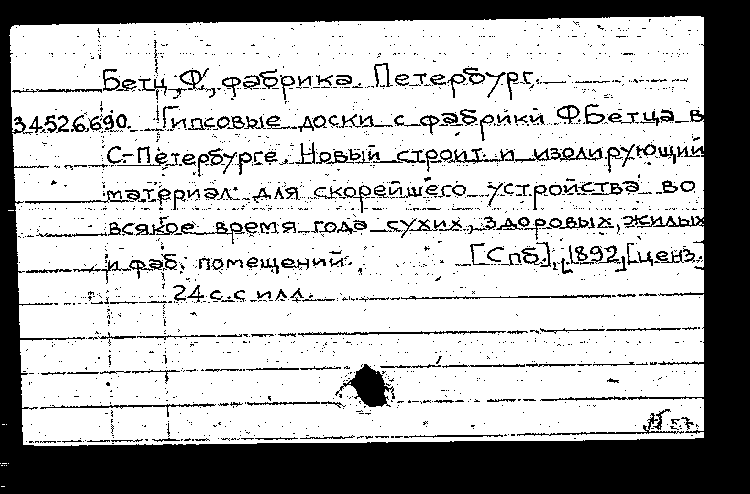 Бетц, Ф., фабрика. Петербург.
34.526.690. Гипсовые доски с фабрики Ф.Бетца в
С.-Петербурге. Новый строит. и изолирующий
материал для скорейшего устройства во
всякое время года сухих, здоровых, жилых
и фаб. помещений. [Спб.], [1892], [ценз.
24 с. с илл.